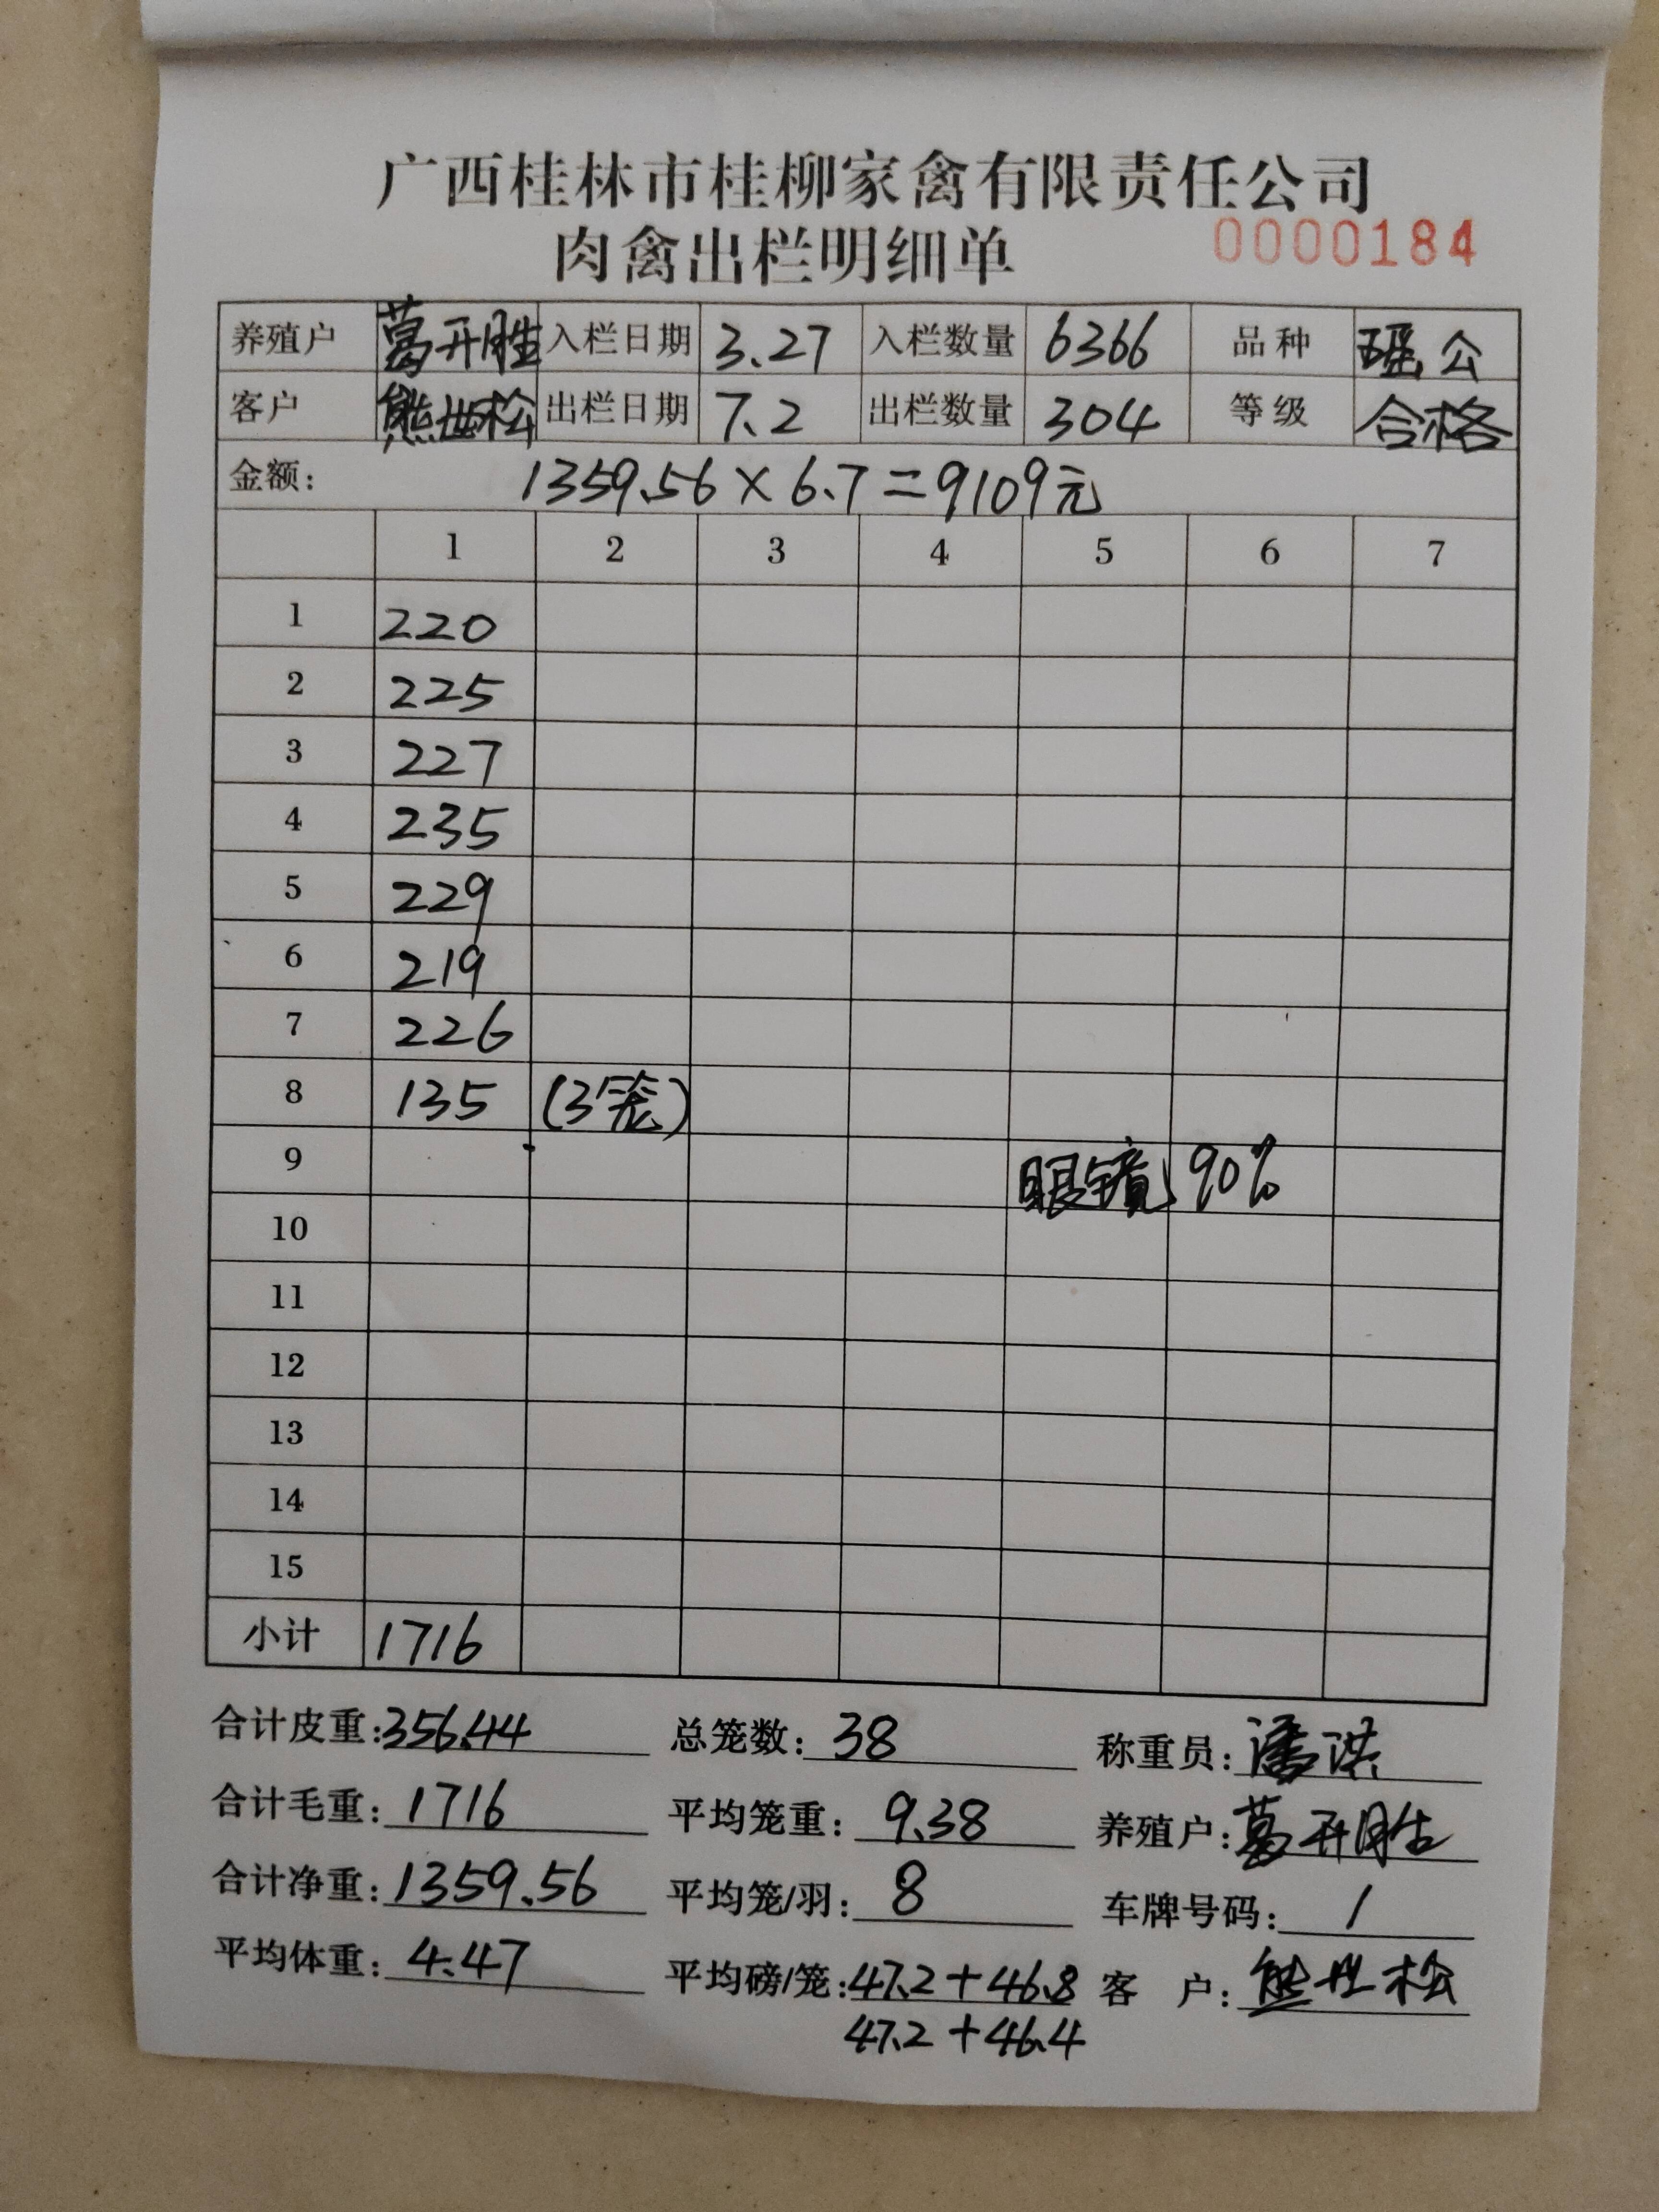 广西桂林市桂柳家禽有限责任公司
肉禽出栏明细单 0000184
养殖户 葛开胜 入栏日期 3.27 入栏数量 6366 品种 瑶公
客户 熊世松 出栏日期 7.2 出栏数量 304 等级 合格
金额: 1359.56×6.7=9109元
1 2 3 4 5 6 7
1 220
2 225
3 227
4 235
5 229
6 219
7 226
8 135 (3笼)
9 眼镜 90%
10
11
12
13
14
15
小计 1716
合计皮重:356.44 总笼数:38 称重员:潘洪
合计毛重:1716 平均笼重:9.38 养殖户:葛开胜
合计净重:1359.56 平均笼/羽:8 车牌号码:1
平均体重:4.47 平均磅/笼:47.2+46.8 客户:熊世松
47.2+46.4